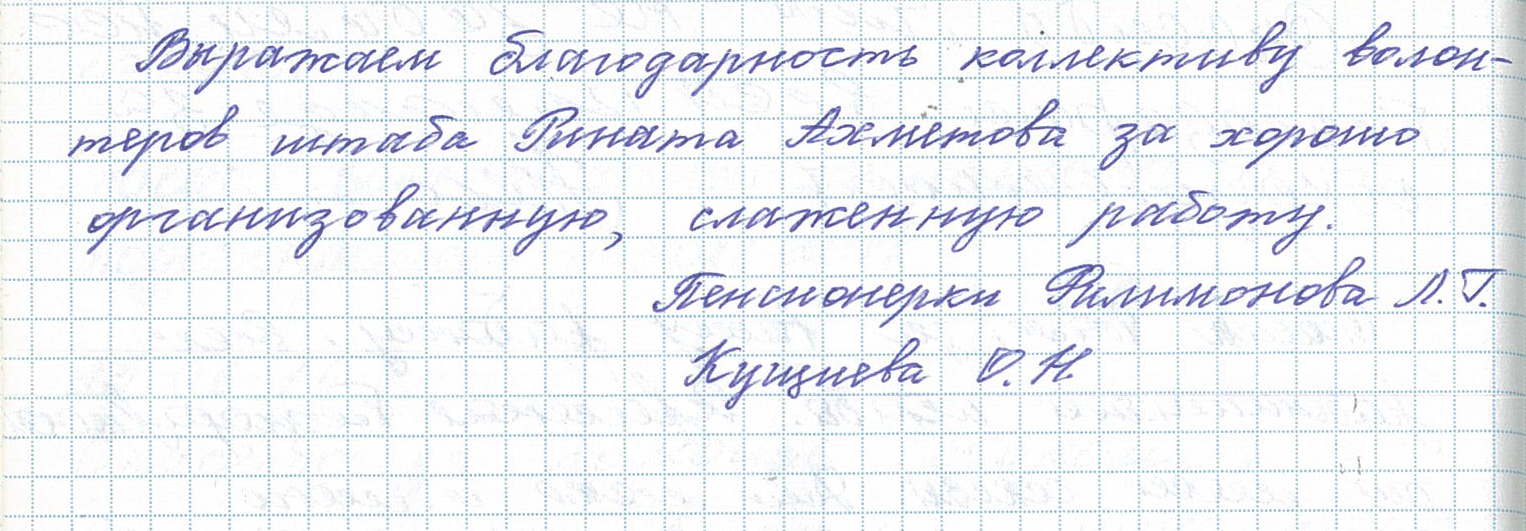 Выражаем благодарность коллективу волон-
теров штаба Рината Ахметова за хорошо
организованную, слаженную работу.
Пенсионерки Филимонова Л.Г.
О.Н.